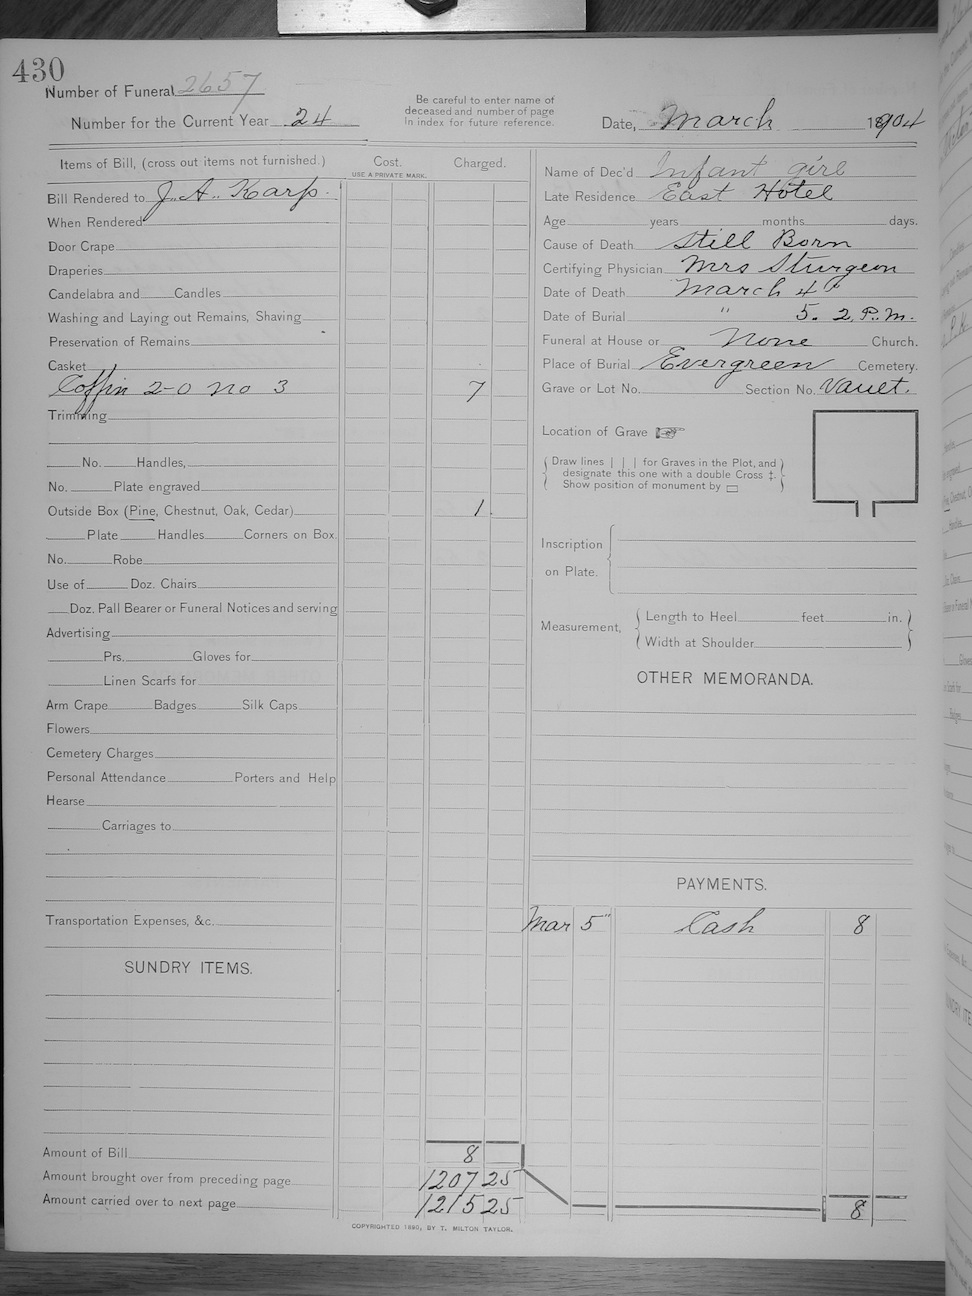 430
Number of Funeral 2657
Number for the Current Year 24
Be careful to enter name of
deceased and number of page
in index for future reference.
Date, March 1904
Items of Bill, (cross out items not furnished.)
Cost.
USE A PRIVATE MARK.
Charged.
Bill Rendered to J. A. Karp.
When Rendered
Door Crape
Draperies
Candelabra and Candles
Washing and Laying out Remains, Shaving
Preservation of Remains
Casket
Coffin 2-0 no 3 7
Trimming
No. Handles,
No. Plate engraved
Outside Box (Pine, Chestnut, Oak, Cedar) 1
Plate Handles Corners on Box.
No. Robe
Use of Doz. Chairs
Doz. Pall Bearer or Funeral Notices and serving
Advertising
Prs. Gloves for
Linen Scarfs for
Arm Crape Badges Silk Caps
Flowers
Cemetery Charges
Personal Attendance Porters and Help
Hearse
Carriages to
Transportation Expenses, &c.
SUNDRY ITEMS.
Amount of Bill 8
Amount brought over from preceding page 1207 25
Amount carried over to next page 1215 25
Name of Dec'd Infant girl
Late Residence East Hotel
Age years months days.
Cause of Death Still Born
Certifying Physician Mrs Sturgeon
Date of Death March 4
Date of Burial " 5. 2. P.M.
Funeral at House or None Church.
Place of Burial Evergreen Cemetery.
Grave or Lot No. Section No. Vault.
Location of Grave
Draw lines | | | for Graves in the Plot, and
designate this one with a double Cross ‡.
Show position of monument by
Inscription
on Plate.
Measurement, Length to Heel feet in.
Width at Shoulder
OTHER MEMORANDA.
PAYMENTS.
Mar 5" Cash 8
8
COPYRIGHTED 1890, BY T. MILTON TAYLOR.